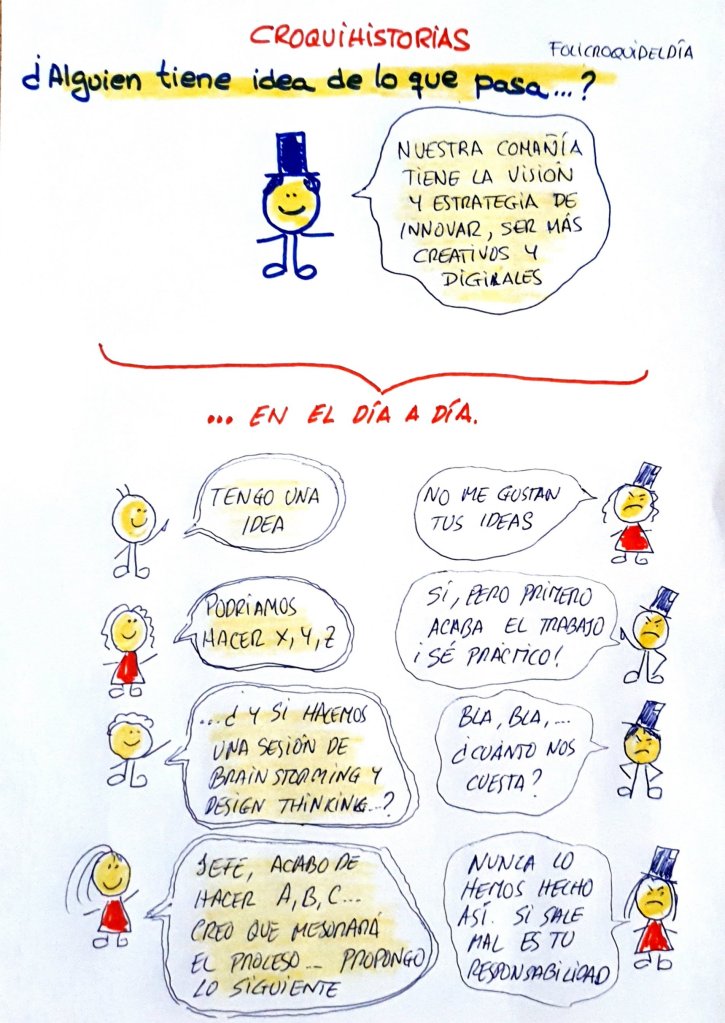 CROQUIHISTORIAS
FOLICROQUIDELDÍA
¿Alguien tiene idea de lo que pasa...?
NUESTRA COMAÑÍA
TIENE LA VISIÓN
Y ESTRATEGIA DE
INNOVAR, SER MÁS
CREATIVOS Y
DIGIALES
... EN EL DÍA A DÍA.
TENGO UNA
IDEA
NO ME GUSTAN
TUS IDEAS
PODRÍAMOS
HACER X, Y, Z
SÍ, PERO PRIMERO
ACABA EL TRABAJO
¡SÉ PRÁCTICO!
...¿Y SI HACEMOS
UNA SESIÓN DE
BRAINSTORMING Y
DESIGN THINKING...?
BLA, BLA,...
¿CUÁNTO NOS
CUESTA?
JEFE, ACABO DE
HACER A, B, C...
CREO QUE MEJORARÁ
EL PROCESO... PROPONGO
LO SIGUIENTE
NUNCA LO
HEMOS HECHO
ASÍ. SI SALE
MAL ES TU
RESPONSABILIDAD